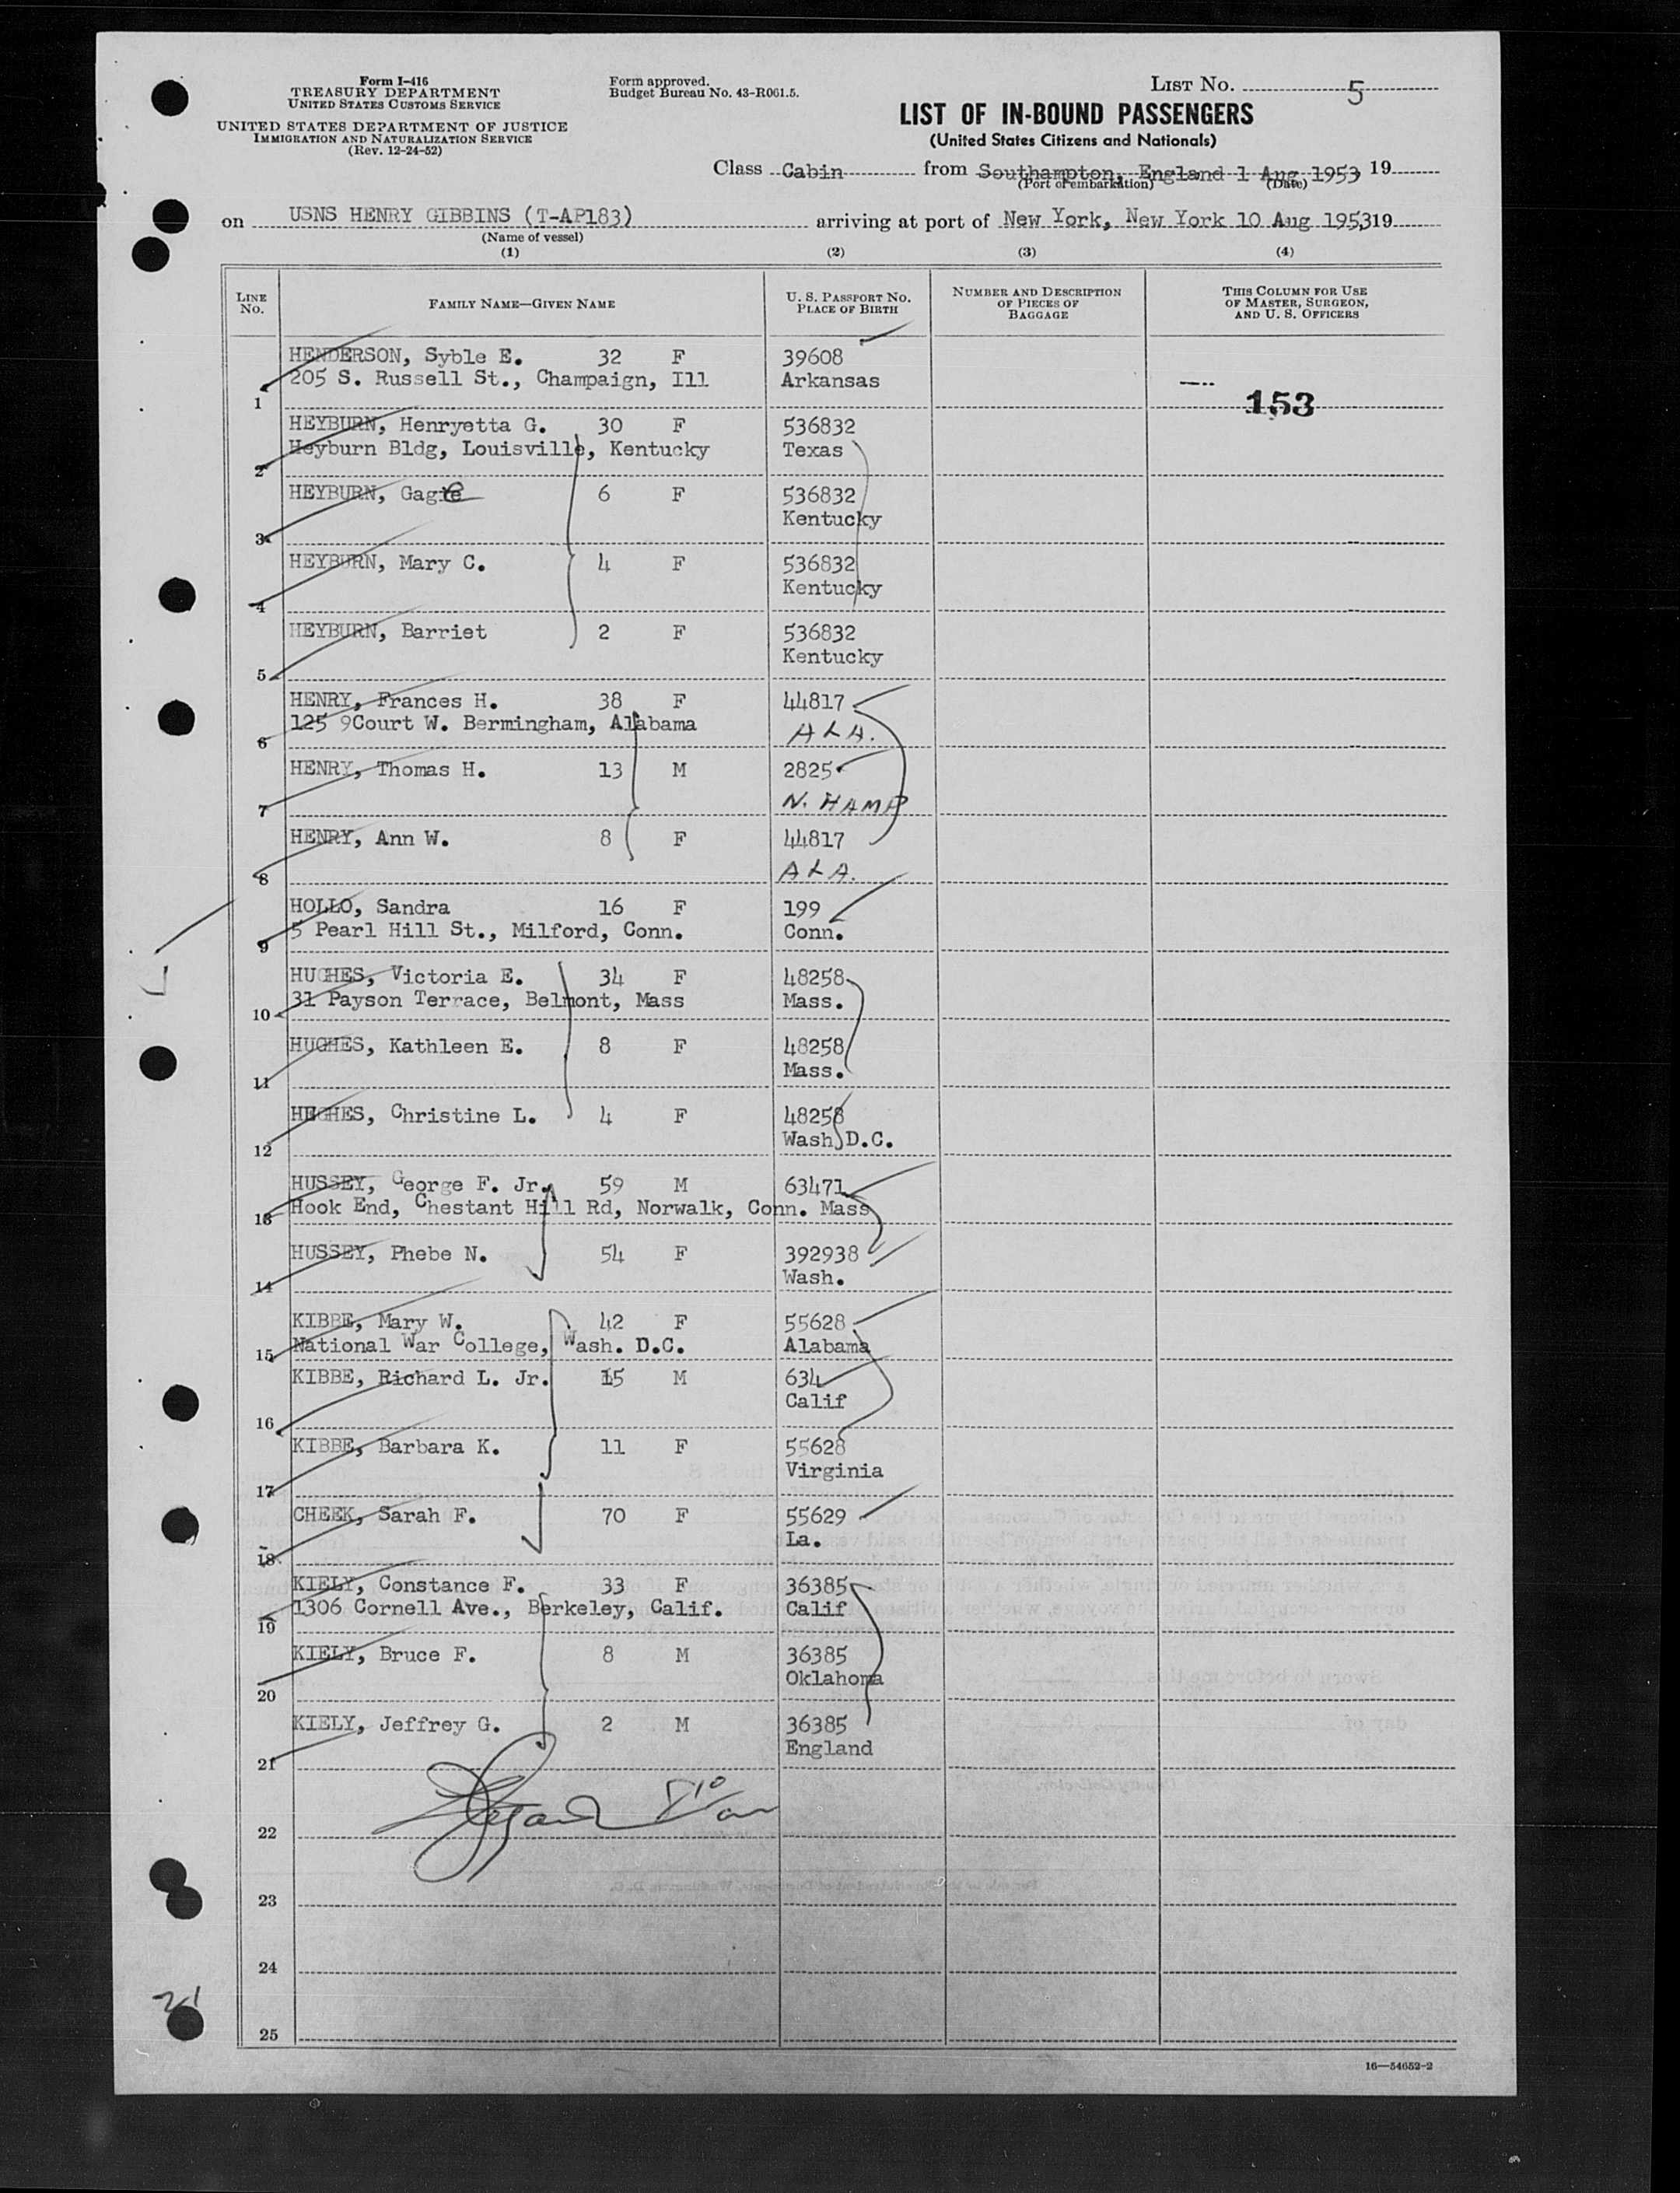 Form I-416
TREASURY DEPARTMENT
UNITED STATES CUSTOMS SERVICE
UNITED STATES DEPARTMENT OF JUSTICE
IMMIGRATION AND NATURALIZATION SERVICE
(Rev. 12-24-52)
Form approved.
Budget Bureau No. 43-R061.5.
LIST No. 5
LIST OF IN-BOUND PASSENGERS
(United States Citizens and Nationals)
Class Cabin from Southampton, England 1 Aug 1953 19
(Port of embarkation) (Date)
on USNS HENRY GIBBINS (T-AP183) arriving at port of New York, New York 10 Aug 1953 19
(Name of vessel)
(1) (2) (3) (4)
LINE NO. FAMILY NAME—GIVEN NAME U. S. PASSPORT NO. PLACE OF BIRTH NUMBER AND DESCRIPTION OF PIECES OF BAGGAGE THIS COLUMN FOR USE OF MASTER, SURGEON, AND U. S. OFFICERS
HENDERSON, Syble E. 32 F 39608
205 S. Russell St., Champaign, Ill Arkansas
1 153
HEYBURN, Henryetta G. 30 F 536832
Heyburn Bldg, Louisville, Kentucky Texas
2
HEYBURN, Gage 6 F 536832
Kentucky
3
HEYBURN, Mary C. 4 F 536832
Kentucky
4
HEYBURN, Barriet 2 F 536832
Kentucky
5
HENRY, Frances H. 38 F 44817
125 9Court W. Bermingham, Alabama ALA.
6
HENRY, Thomas H. 13 M 2825
N. HAMP
7
HENRY, Ann W. 8 F 44817
ALA.
8
HOLLO, Sandra 16 F 199
5 Pearl Hill St., Milford, Conn. Conn.
9
HUGHES, Victoria E. 34 F 48258
31 Payson Terrace, Belmont, Mass Mass.
10
HUGHES, Kathleen E. 8 F 48258
Mass.
11
HUGHES, Christine L. 4 F 48258
Wash D.C.
12
HUSSEY, George F. Jr. 59 M 63471
Hook End, Chestant Hill Rd, Norwalk, Conn. Mass
13
HUSSEY, Phebe N. 54 F 392938
Wash.
14
KIBBE, Mary W. 42 F 55628
National War College, Wash. D.C. Alabama
15
KIBBE, Richard L. Jr. 15 M 634
Calif
16
KIBBE, Barbara K. 11 F 55628
Virginia
17
CHEEK, Sarah F. 70 F 55629
La.
18
KIELY, Constance F. 33 F 36385
1306 Cornell Ave., Berkeley, Calif. Calif
19
KIELY, Bruce F. 8 M 36385
Oklahoma
20
KIELY, Jeffrey G. 2 M 36385
England
21
22
23
24
21
25
16—54652-2